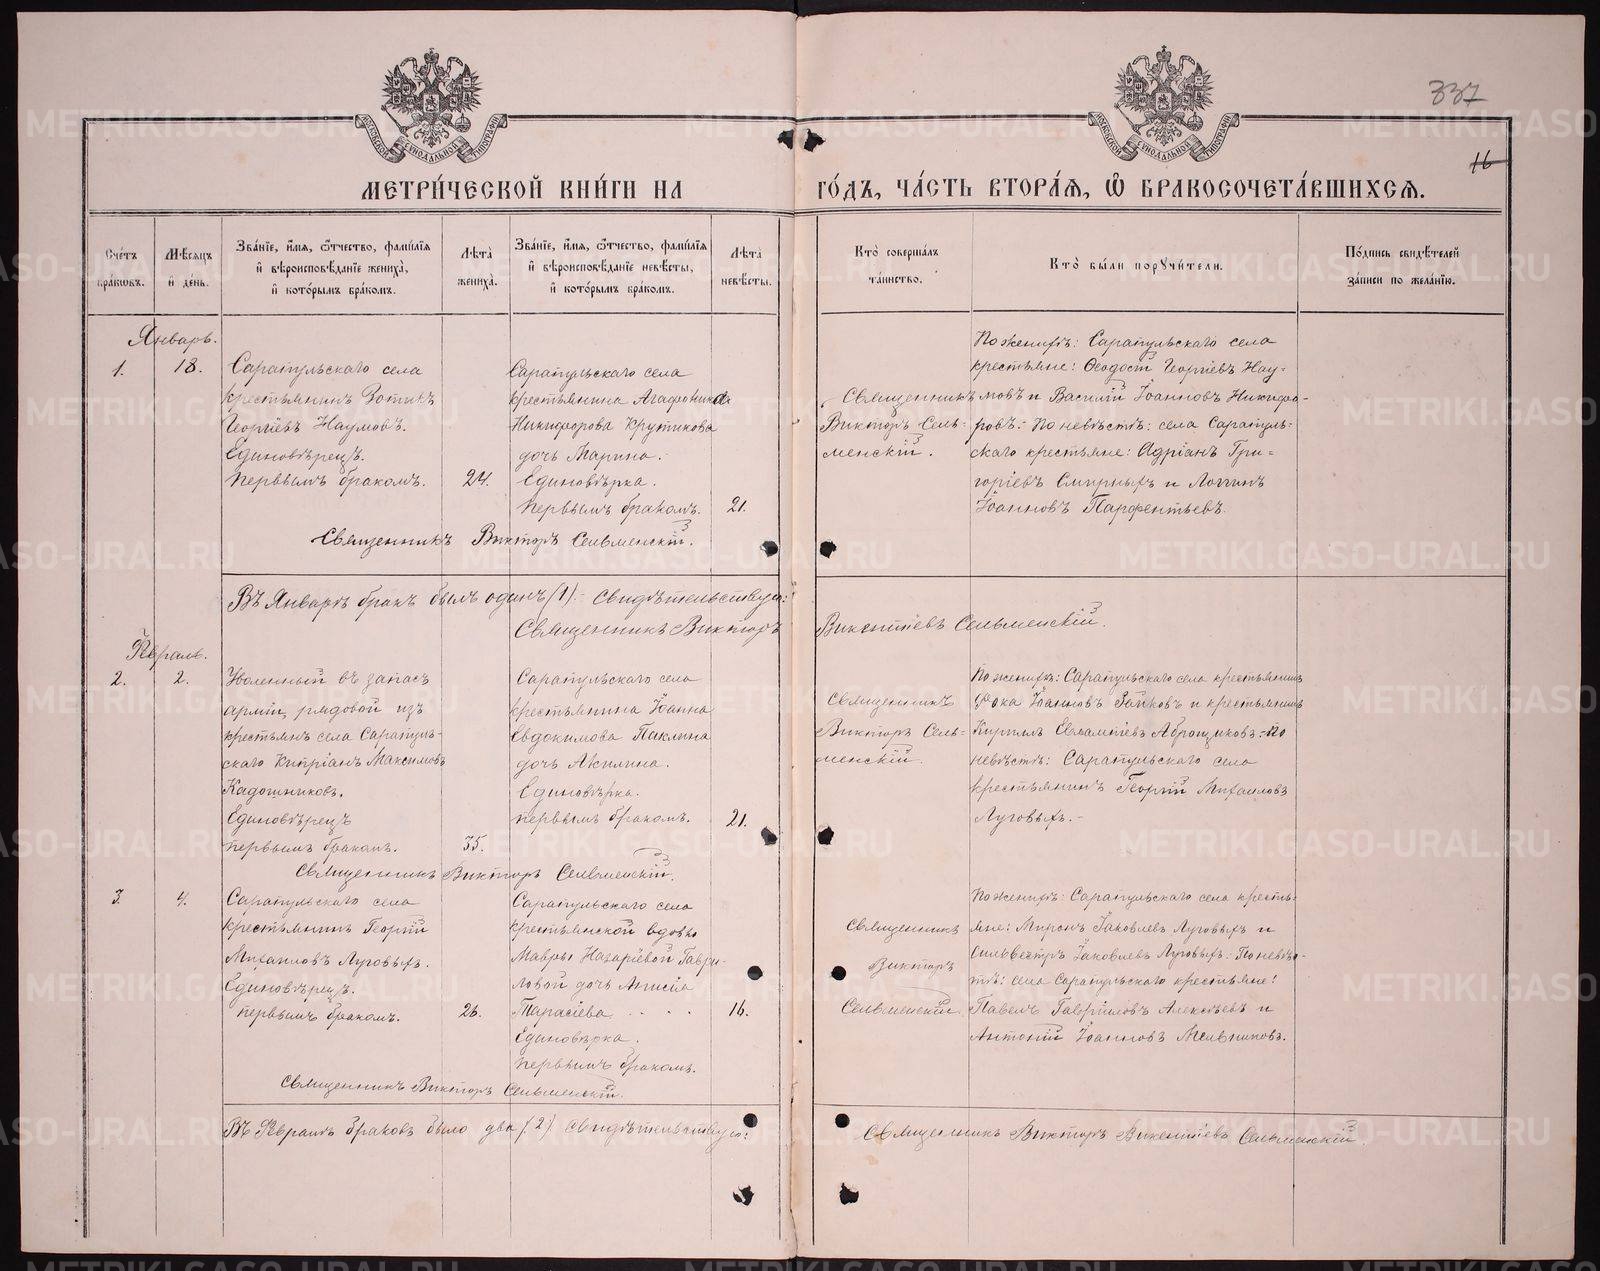 337
16
МОСКОВСКОЙ СѴНОДАЛЬНОЙ ТИПОГРАФІИ
МОСКОВСКОЙ СѴНОДАЛЬНОЙ ТИПОГРАФІИ
МЕТРИ́ЧЕСКОЙ КНИ́ГИ НА ГО́ДЪ, ЧА́СТЬ ВТОРА́Я, Ѽ БРАКОСОЧЕТА́ВШИХСЯ.
Сче́тъ бра́ковъ.
Мѣ́сяцъ и҆ де́нь.
Зва́нїе, и҆́мя, ѻ҆́тчество, фамѝлїя
и҆ вѣроисповѣ́данїе жениха̀,
и҆ кото́рымъ бра́комъ.
Лѣта̀ жениха̀.
Зва́нїе, и҆́мя, ѻ҆́тчество, фамѝлїя
и҆ вѣроисповѣ́данїе невѣ́сты,
и҆ кото́рымъ бра́комъ.
Лѣта̀ невѣ́сты.
Кто̀ соверша́лъ та́инство.
Кто̀ бы́ли поручи́тели.
По́дпись свидѣ́телей
за́писи по жела́нїю.
Январь.
1.
18.
Сарапульскаго села
крестьянинъ Зотикъ
Георгіевъ Наумовъ.
Единовѣрецъ.
первымъ бракомъ.
24.
Сарапульскаго села
крестьянина Агафоника
Никифорова Крутикова
дочь Марина.
Единовѣрка.
первымъ бракомъ.
21.
Священникъ
Викторъ Сель-
менскій.
По женихѣ: Сарапульскаго села
крестьяне: Ѳеодосій Георгіевъ Нау-
мовъ и Василій Іоанновъ Никифо-
ровъ.- По невѣстѣ: села Сарапуль-
скаго крестьяне: Адріанъ Гри-
горіевъ Смирныхъ и Логгинъ
Іоанновъ Парфентьевъ.
Священникъ Викторъ Сельменскій.
Въ Январѣ бракъ былъ одинъ (1).- Свидѣтельствую:
Священникъ Викторъ Викентіевъ Сельменскій.
Февраль.
2.
2.
Уволенный въ запасъ
арміи, рядовой изъ
крестьянъ села Сарапуль-
скаго Кипріанъ Максимовъ
Кадошниковъ.
Единовѣрецъ
первымъ бракомъ.
35.
Сарапульскаго села
крестьянина Іоанна
Евдокимова Паклина
дочь Акилина.
Единовѣрка.
первымъ бракомъ.
21.
Священникъ
Викторъ Сель-
менскій.
По женихѣ: Сарапульскаго села крестьянинъ
Фока Іоанновъ Зайковъ и крестьянинъ
Кириллъ Евлампіевъ Аброщиковъ.- По
невѣстѣ: Сарапульскаго села
крестьянинъ Георгій Михаиловъ
Луговыхъ.-
Священникъ Викторъ Сельменскій.
3.
4.
Сарапульскаго села
крестьянинъ Георгій
Михаиловъ Луговыхъ.
Единовѣрецъ.
первымъ бракомъ.
26.
Сарапульскаго села
крестьянской вдовы
Мавры Назаріевой Гаври-
ловой дочь Анисія
Тарасіева . . . .
Единовѣрка.
первымъ бракомъ.
16.
Священникъ
Викторъ
Сельменскій.
По женихѣ: Сарапульскаго села кресть-
яне: Миронъ Іаковлевъ Луговыхъ и
Сильвестръ Іаковлевъ Луговыхъ. По невѣс-
тѣ: села Сарапульскаго крестьяне:
Павелъ Гавріиловъ Алексѣевъ и
Антоній Іоанновъ Мельниковъ.
Священникъ Викторъ Сельменскій.
Въ Февралѣ браковъ было два (2) Свидѣтельствую: Священникъ Викторъ Викентіевъ Сельменскій.
METRIKI.GASO-URAL.RU